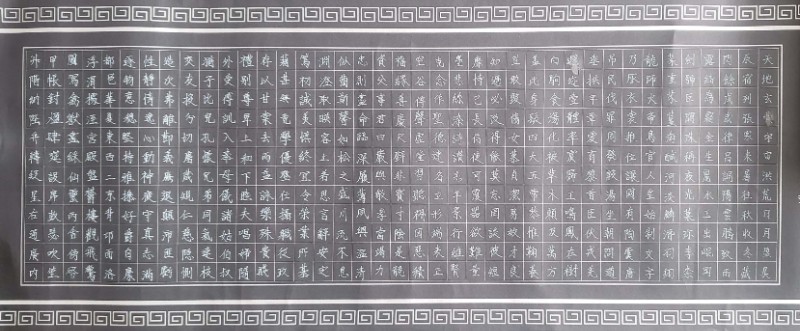 天地玄黃宇宙洪荒日月盈昃
辰宿列張寒來暑往秋收冬藏
閏餘成歲律呂調陽雲騰致雨
露結為霜金生麗水玉出崑岡
劍號巨闕珠稱夜光果珍李柰
菜重芥薑海鹹河淡鱗潛羽翔
龍師火帝鳥官人皇始制文字
乃服衣裳推位讓國有虞陶唐
弔民伐罪周發殷湯坐朝問道
垂拱平章愛育黎首臣伏戎羌
遐邇壹體率賓歸王鳴鳳在樹
白駒食場化被草木賴及萬方
蓋此身髮四大五常恭惟鞠養
豈敢毀傷女慕貞絜男效才良
知過必改得能莫忘罔談彼短
靡恃己長信使可覆器欲難量
墨悲絲染詩讚羔羊景行維賢
克念作聖德建名立形端表正
空谷傳聲虛堂習聽禍因惡積
福緣善慶尺璧非寶寸陰是競
資父事君曰嚴與敬孝當竭力
忠則盡命臨深履薄夙興溫凊
似蘭斯馨如松之盛川流不息
淵澄取映容止若思言辭安定
篤初誠美慎終宜令榮業所基
藉甚無竟學優登仕攝職從政
存以甘棠去而益詠樂殊貴賤
禮別尊卑上和下睦夫唱婦隨
外受傅訓入奉母儀諸姑伯叔
猶子比兒孔懷兄弟同氣連枝
交友投分切磨箴規仁慈隱惻
造次弗離節義廉退顛沛匪虧
性靜情逸心動神疲守真志滿
逐物意移堅持雅操好爵自縻
都邑華夏東西二京背邙面洛
浮渭據涇宮殿盤鬱樓觀飛驚
圖寫禽獸畫彩仙靈丙舍傍啟
甲帳對楹肆筵設席鼓瑟吹笙
陞階納陛弁轉疑星右通廣內